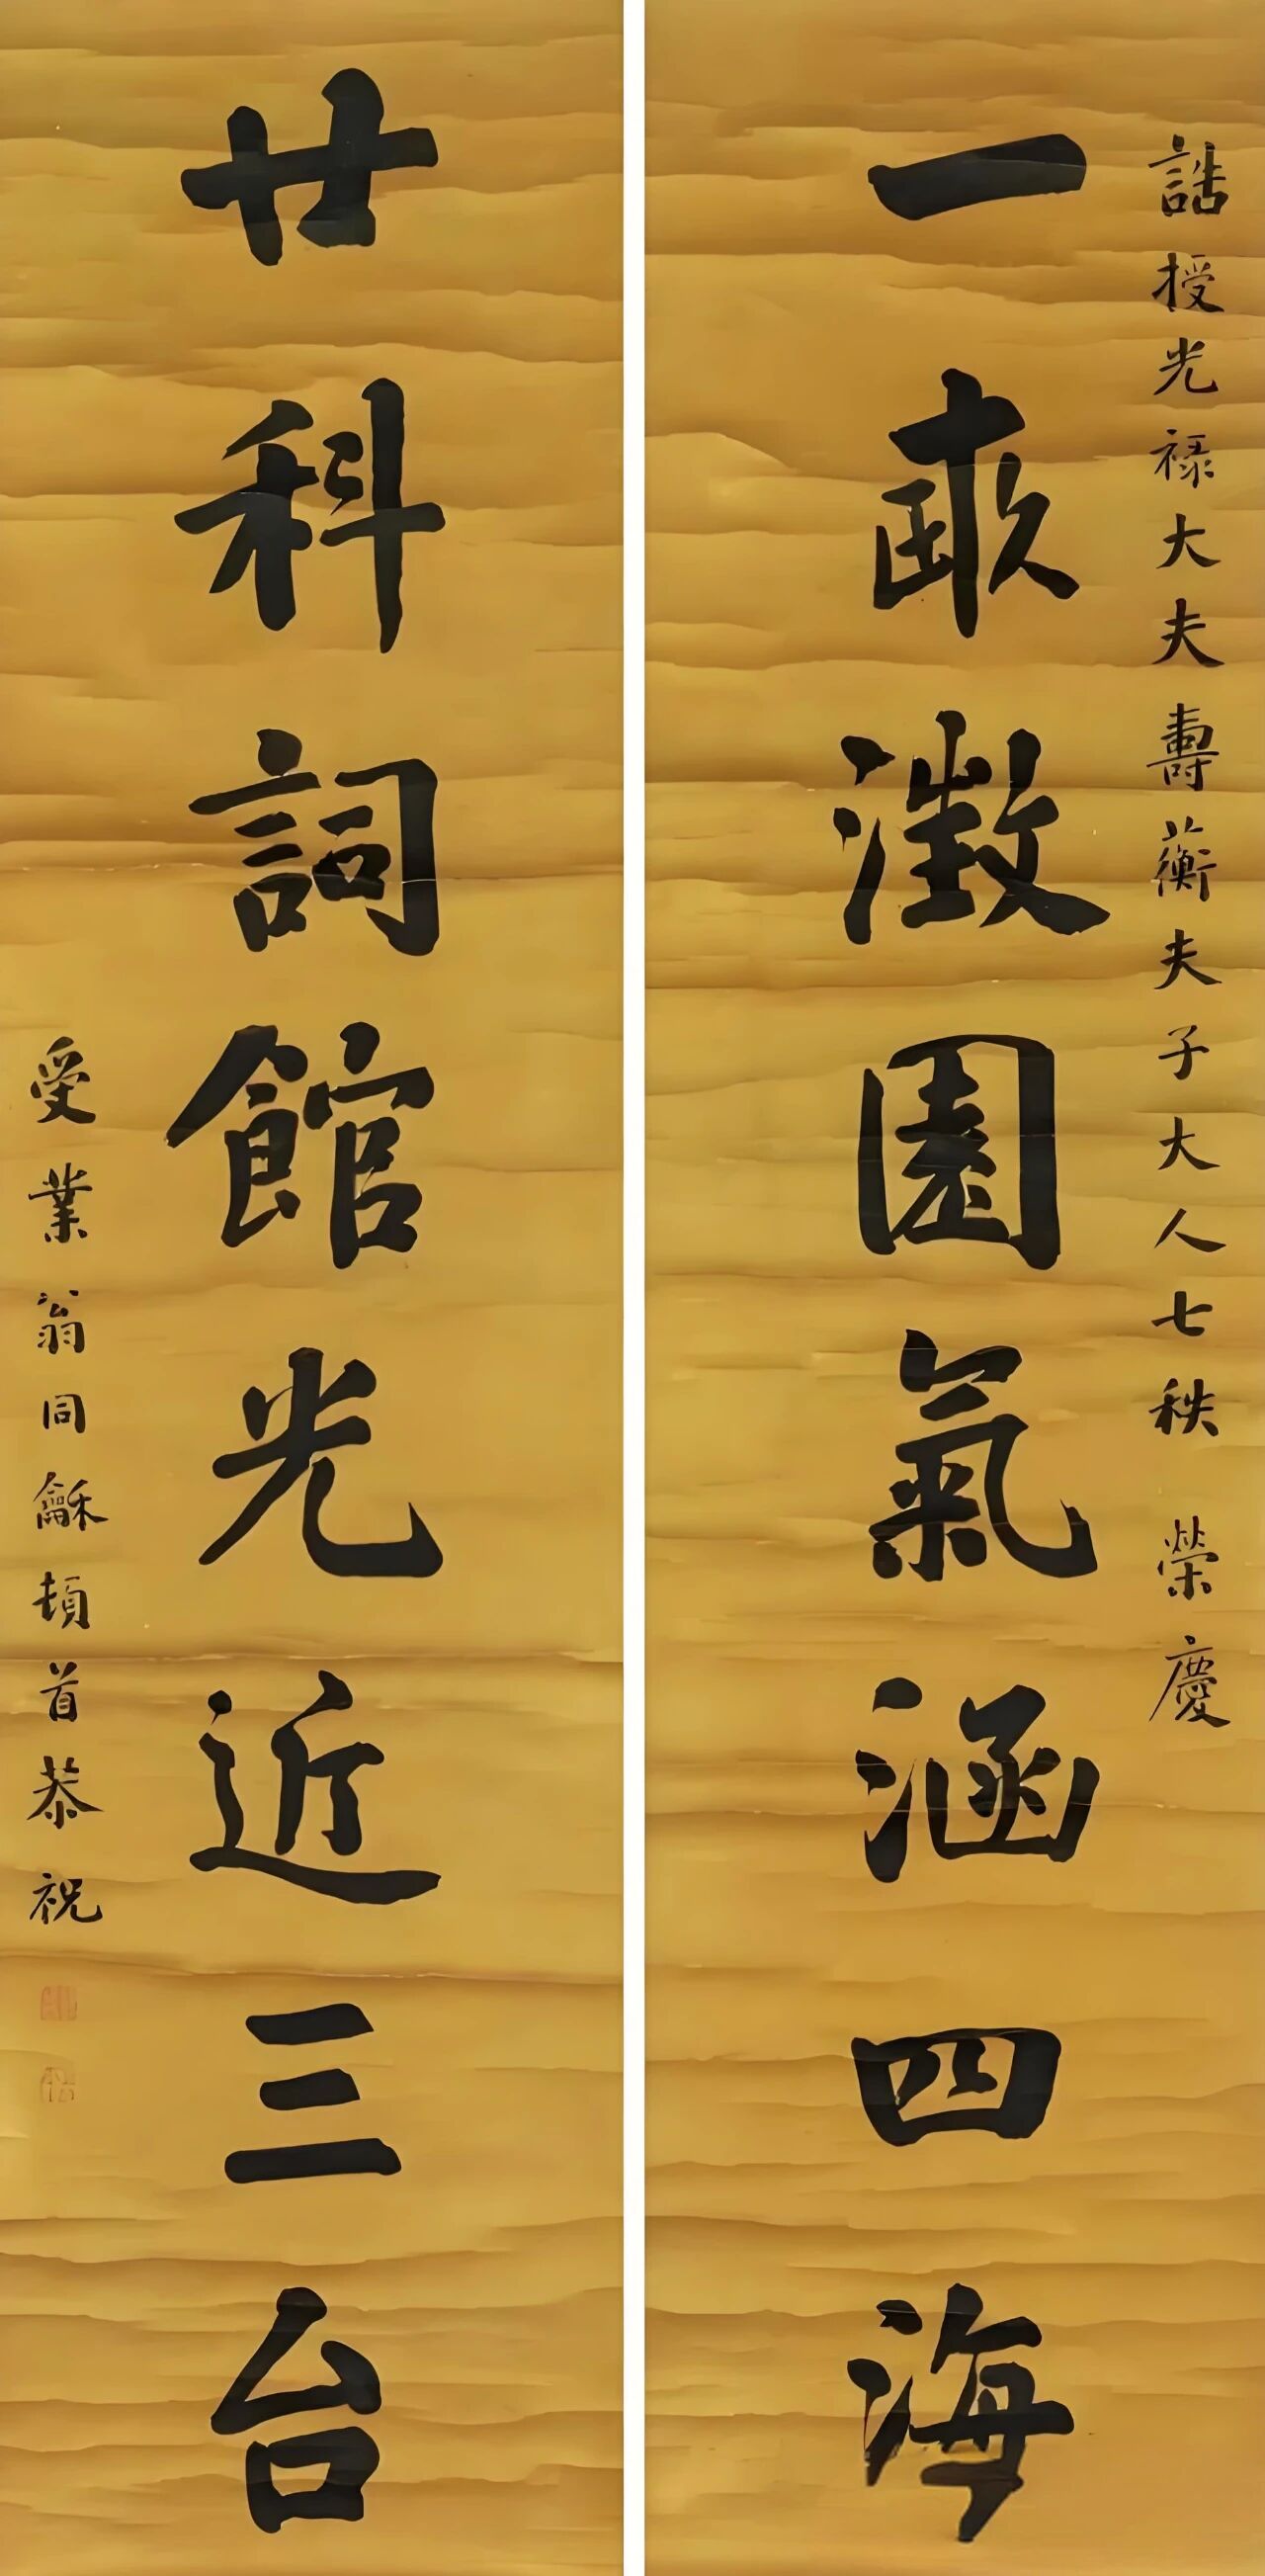 誥授光禄大夫壽蘅夫子大人七秩榮慶
一畞澂園氣涵四海
廿科詞館光近三台
受業翁同龢頓首恭祝